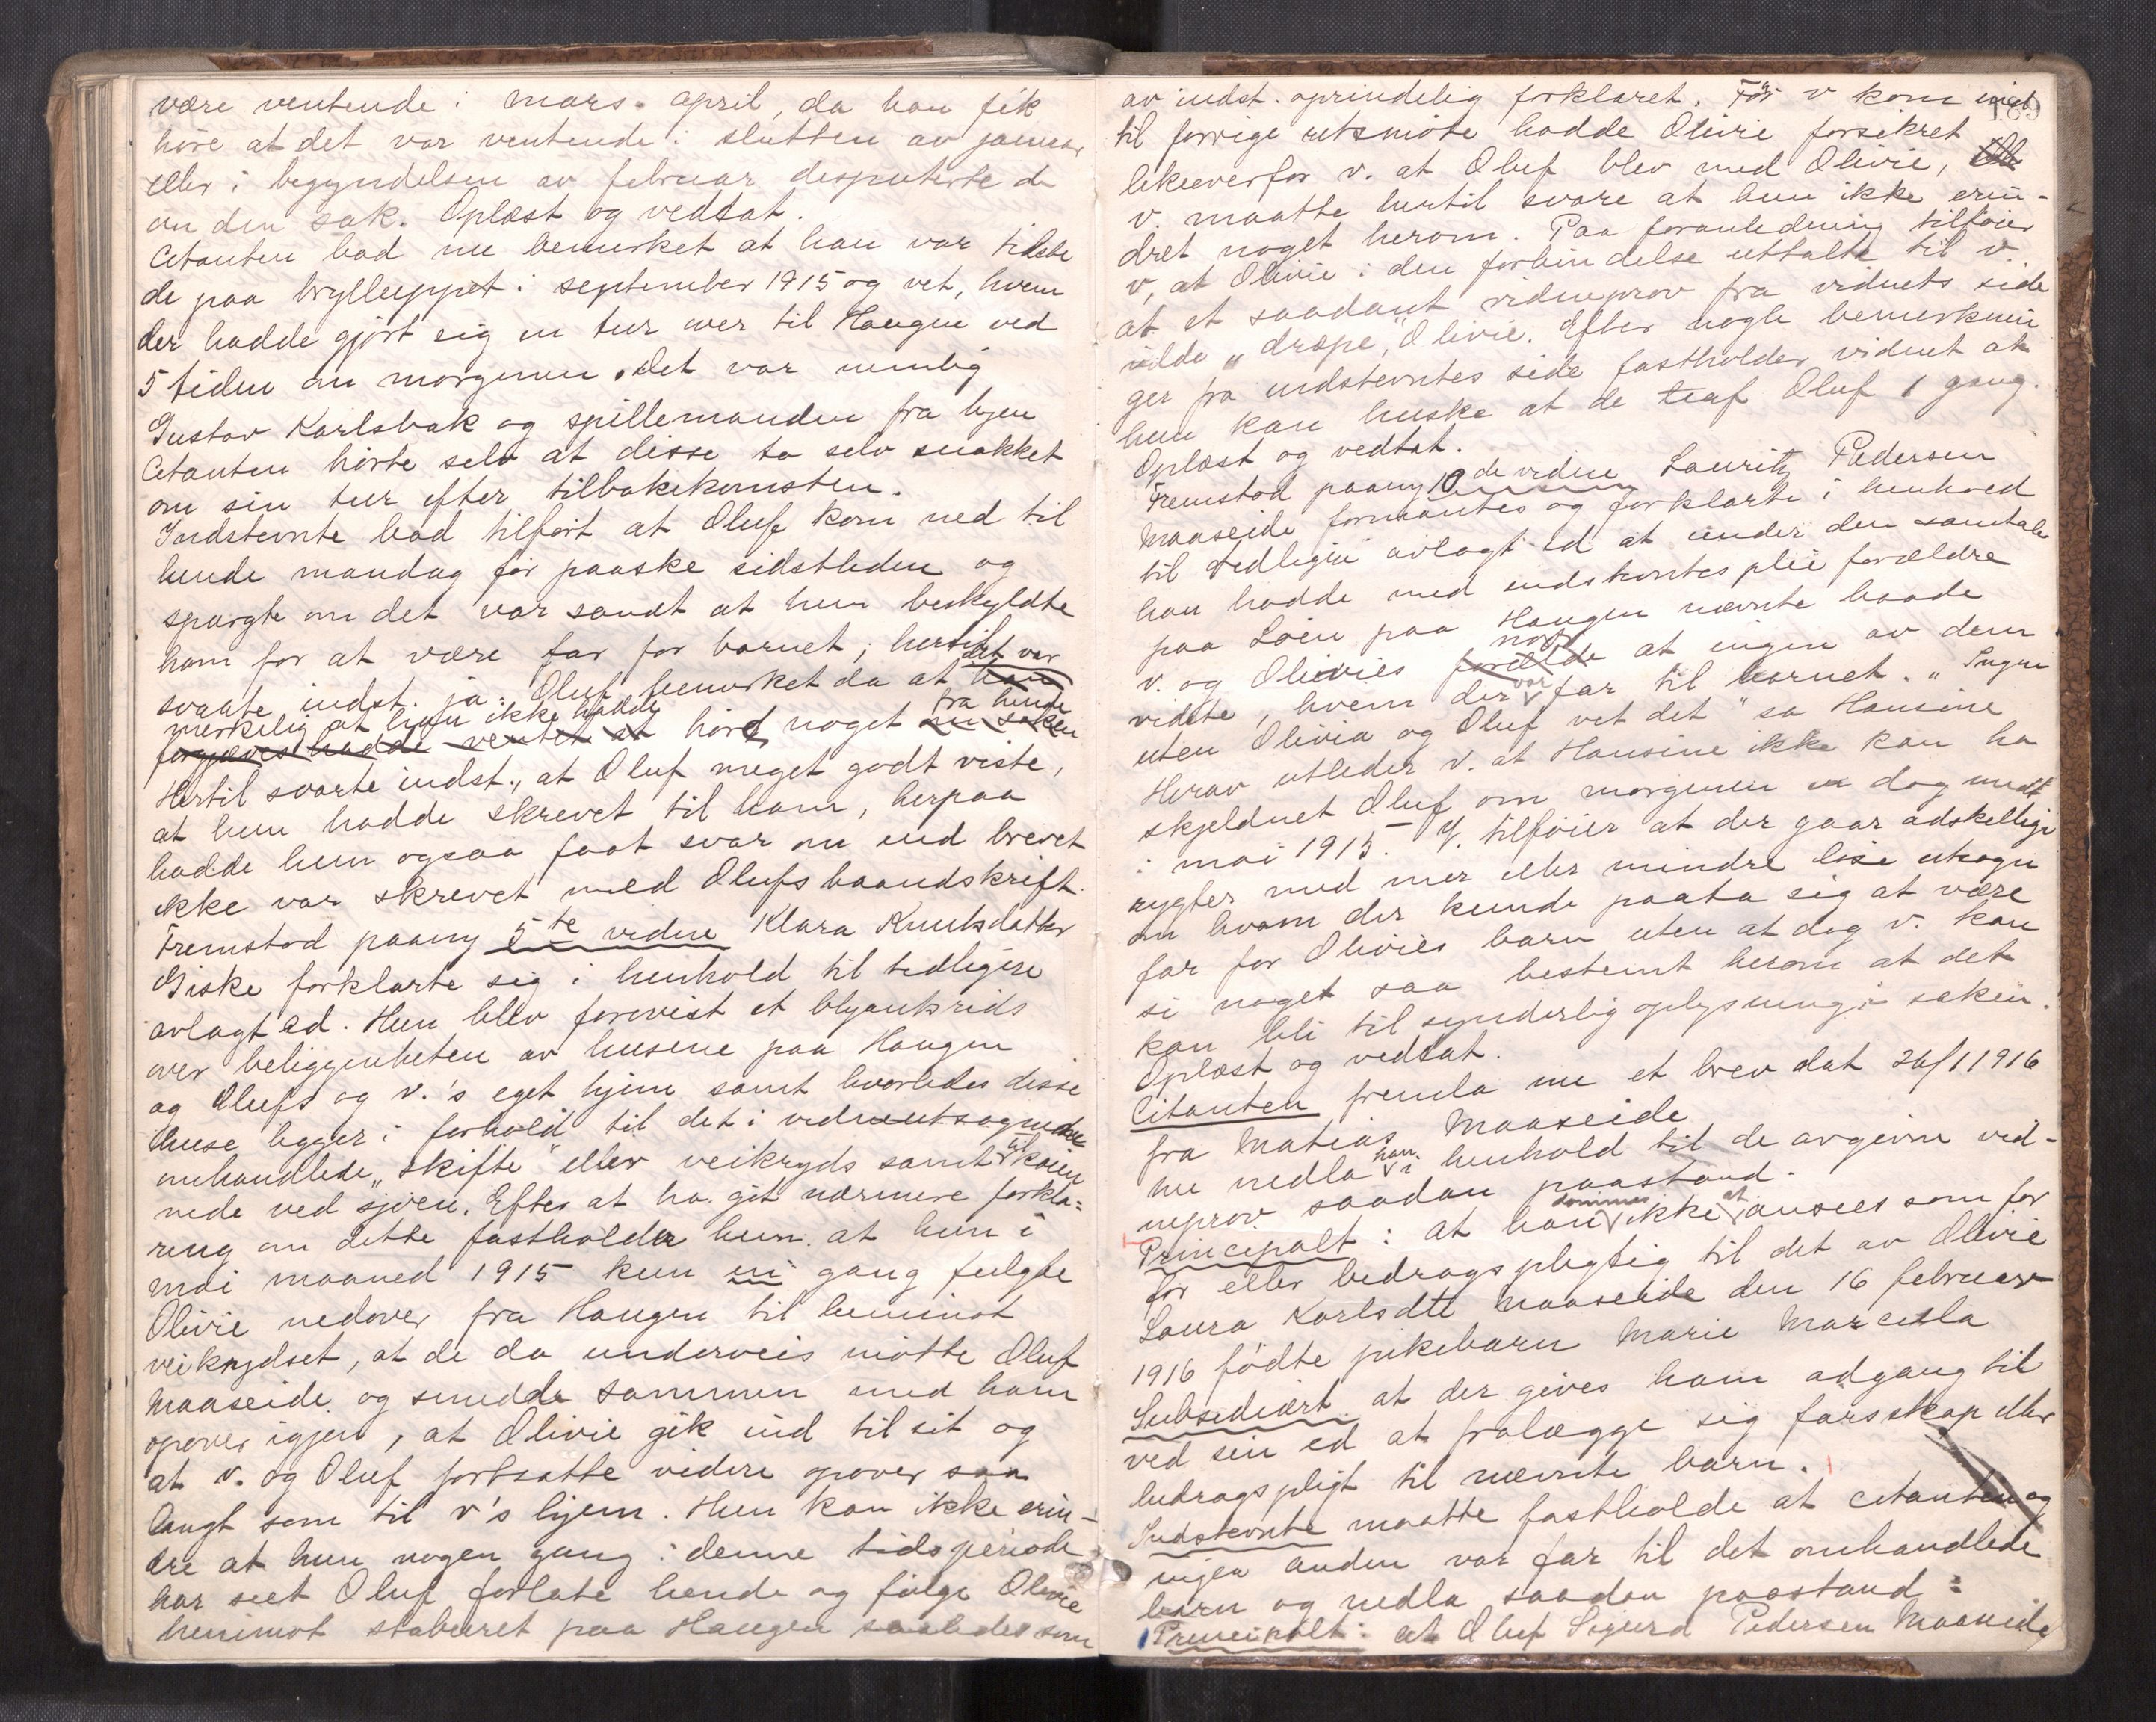 være ventende i mars-april, da han fik
høre at det var ventende i slutten av januar
eller i begyndelsen av februar desputerte de
om den sak. Oplæst og vedtat.
Citanten bad nu bemerket at han var tilste
de paa brylluppet i september 1915 og vet, hvem
der hadde gjort sig en tur over til Haugen ved
5 tiden om morgenen. Det var nemlig
Gustav Karlsbak og spillemanden fra byen
Citanten hørte selv at disse to selv snakket
om sin tur efter tilbakekomsten.
Indstevnte bad tilført at Oluf kom ned til
hende mandag før paaske sidstleden og
spurgte om det var sandt at hun beskyldte
ham for at være far for barnet; hertil
svarte indst. ja. Oluf bemerket da at det var
merkelig at han ikke hadde hørt noget fra hende
Hertil svarte indst., at Oluf meget godt viste,
at hun hadde skrevet til ham, herpaa
hadde hun ogsaa faat svar om end brevet
ikke var skrevet med Olufs haandskrift.
Fremstod paany 5te vidne Klara Knutsdatter
Giske forklarte sig i henhold til tidligere
avlagt ed. Hun blev forevist et blyantsrids
over beliggenheten av husene paa Haugen
og Olufs og v.'s eget hjem samt hvorledes disse
huse ligger i forhold til det i vidneutsagnene
omhandlede "skifte" eller veikryds samt til kaien
nede ved sjøen. Efter at ha git nærmere forkla=
ring om dette fastholder hun at hun i
mai maaned 1915 kun en gang fulgte
Olivie nedover fra Haugen til henimot
veikrydset, at de da underveis møtte Oluf
Maaseide og snudde sammen med ham
opover igjen, at Olivie gik ind til sit og
at v. og Oluf fortsatte videre opover saa
langt som til v's hjem. Hun kan ikke erin-
dre at hun nogen gang i denne tidsperiode
har seet Oluf forlate hende og følge Olivie
henimot staburet paa Haugen saaledes som
189
av indst. oprindelig forklaret. Før v kom ind
til forrige retsmøte hadde Olivie forsikret
likeoverfor v. at Oluf blev med Olivie,
v. maatte hertil svare at hun ikke erin-
dret noget herom. Paa foranledning tilføier
v, at Olivie i den forbindelse uttalte til v.
at et saadant vidneprov fra vidnets side
vilde "dræpe" Olivie. Efter nogle bemerknin
ger fra indstevntes side fastholder vidnet at
hun kan huske at de traf Oluf 1 gang.
Oplæst og vedtat.
Fremstod paany 10de vidne Lauritz Pedersen
Maaseide formantes og forklarte i henhold
til tidligere avlagt ed at under den samtale
han hadde med indstevntes pleieforældre
paa Løen paa Haugen nævnte baade
v. og Olivies mor at ingen av dem
vidste, hvem der var far til barnet. "Ingen
uten Olivia og Oluf vet det" sa Hansine
Herav utleder v. at Hansine ikke kan ha
skjeldnet Oluf om morgenen en dag midt
i mai 1915. V. tilføier at der gaar adskellige
rygter med mer eller mindre løse utsagn
om hvem der kunde paata sig at være
far for Olivies barn uten at dog v. kan
si noget saa bestemt herom at det
kan bli til synderlig oplysning i saken.
Oplæst og vedtat.
Citanten fremla nu et brev dat 26/1 1916
fra Matias Maaseide
nu nedla han i henhold til de avgivne vid-
neprov saadan paastand.
Principalt: at han dømmes ikke at ansees som far
for eller bidragspligtig til det av Olivie
Laura Karlsdtt Maaseide den 16 februar
1916 fødte pikebarn Marie Marcella
Subsediært at der gives ham adgang til
ved sin ed at fralægge sig farsskap eller
bidragspligt til nævnte barn.
Indstevnte maatte fastholde at citanten og
ingen anden var far til det omhandlede
barn og nedla saadan paastand:
Principalt: at Oluf Sigurd Pedersen Maaseide